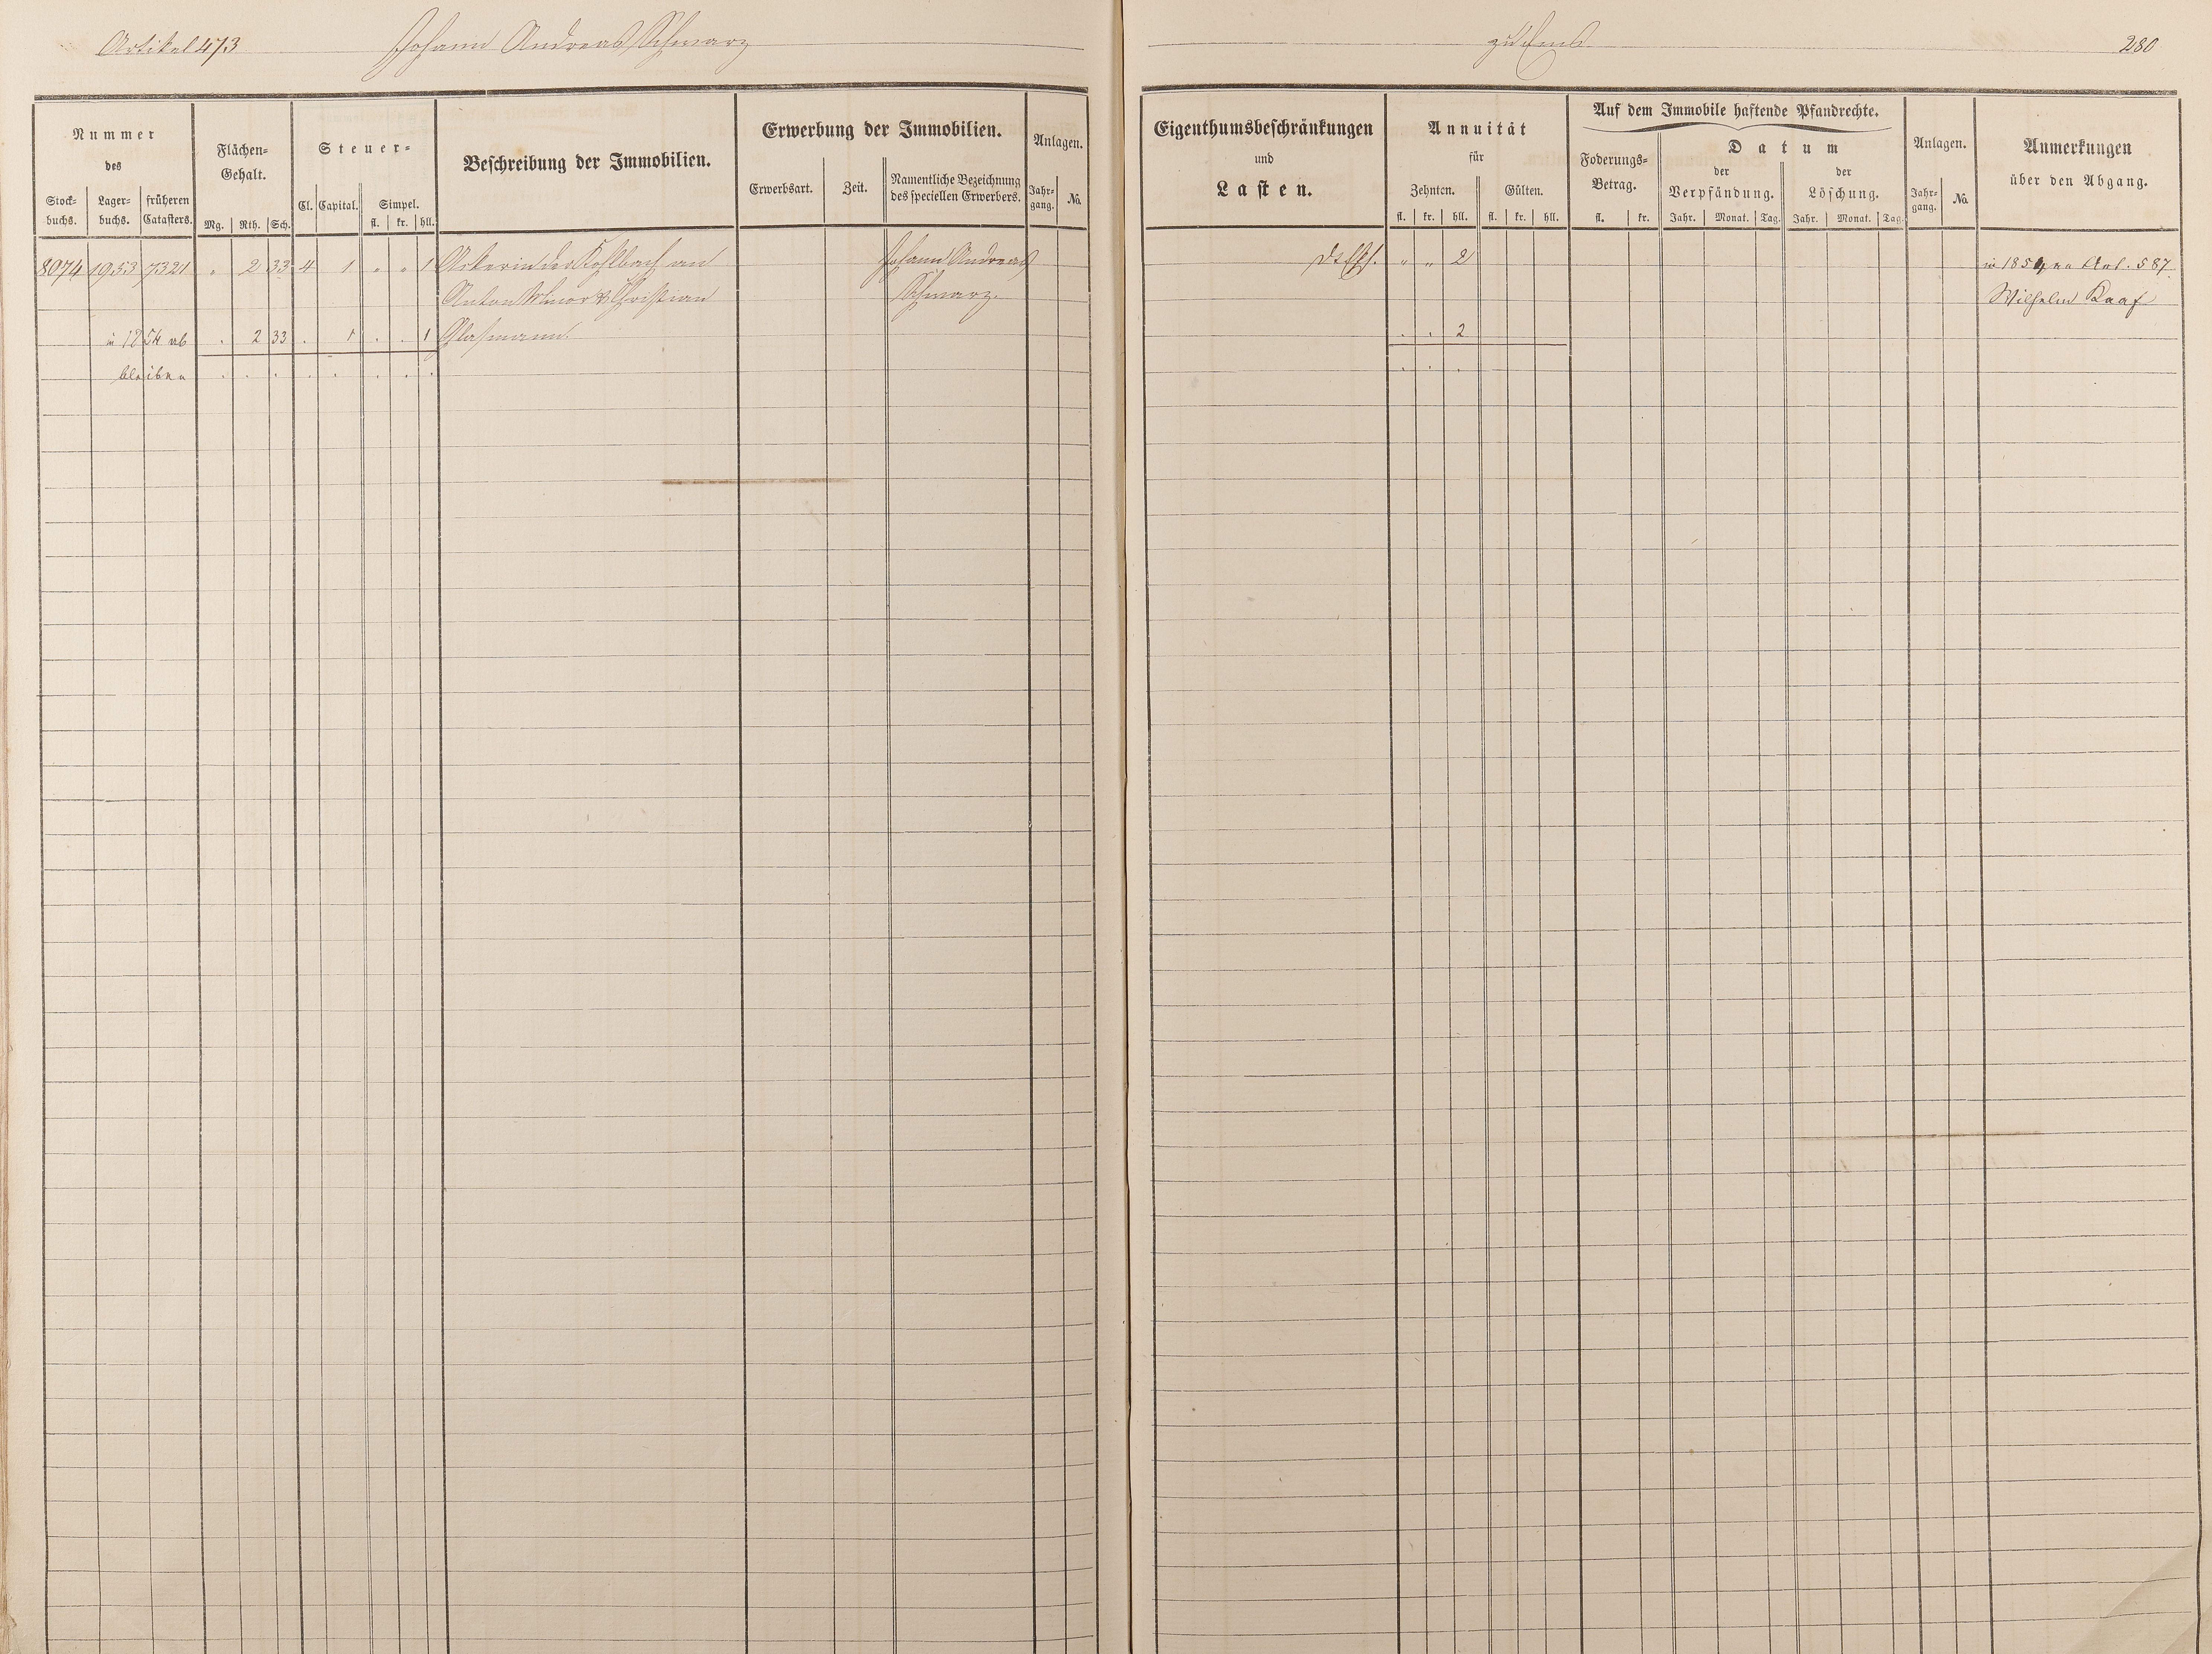 Artikel 473 Johann Andreas Schwarz zu Ems 280
Nummer
des
Stock-
buchs.
Lager-
buchs.
früheren
Catasters.
Flächen-
Gehalt.
Mg. Rth. Sch.
Steuer-
Cl. Capital. Simpel.
fl. kr. hll.
Beschreibung der Immobilien.
Erwerbung der Immobilien.
Erwerbsart. Zeit. Namentliche Bezeichnung
des speciellen Erwerbers.
Anlagen.
Jahr-
gang. No.
Eigenthumsbeschränkungen
und
Lasten.
Annuität
für
Zehnten. Gülten.
fl. kr. hll. fl. kr. hll.
Auf dem Immobile haftende Pfandrechte.
Foderungs-
Betrag.
fl. kr.
Datum
der
Verpfändung.
Jahr. Monat. Tag.
der
Löschung.
Jahr. Monat. Tag.
Anlagen.
Jahr-
gang. No.
Anmerkungen
über den Abgang.
8074 1953 7321 " 2 33 4 1 " " 1 Acker in der Kohlbach an Johann Andreas " " 2 in 1854 an Art. 587
Anton & Christian Schwarz. Wilhelm Kaaf
in 1854 ab . 2 33 . 1 . . 1 Glasmann. . . 2
bleiben . . . . . . . . . . .